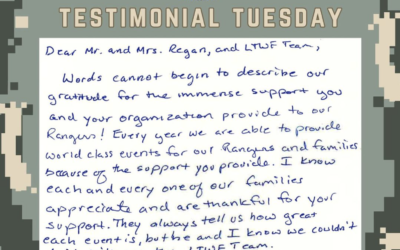 TESTIMONIAL TUESDAY
Dear Mr. and Mrs. Regan, and LTWF Team,
Words cannot begin to describe our
gratitude for the immense support you
and your organization provide to our
Rangers! Every year we are able to provide
world class events for our Rangers and families
because of the support you provide. I know
each and every one of our families
appreciate and are thankful for your
support. They always tell us how great
each event is, but he and I know we couldn't
LTWF Team.